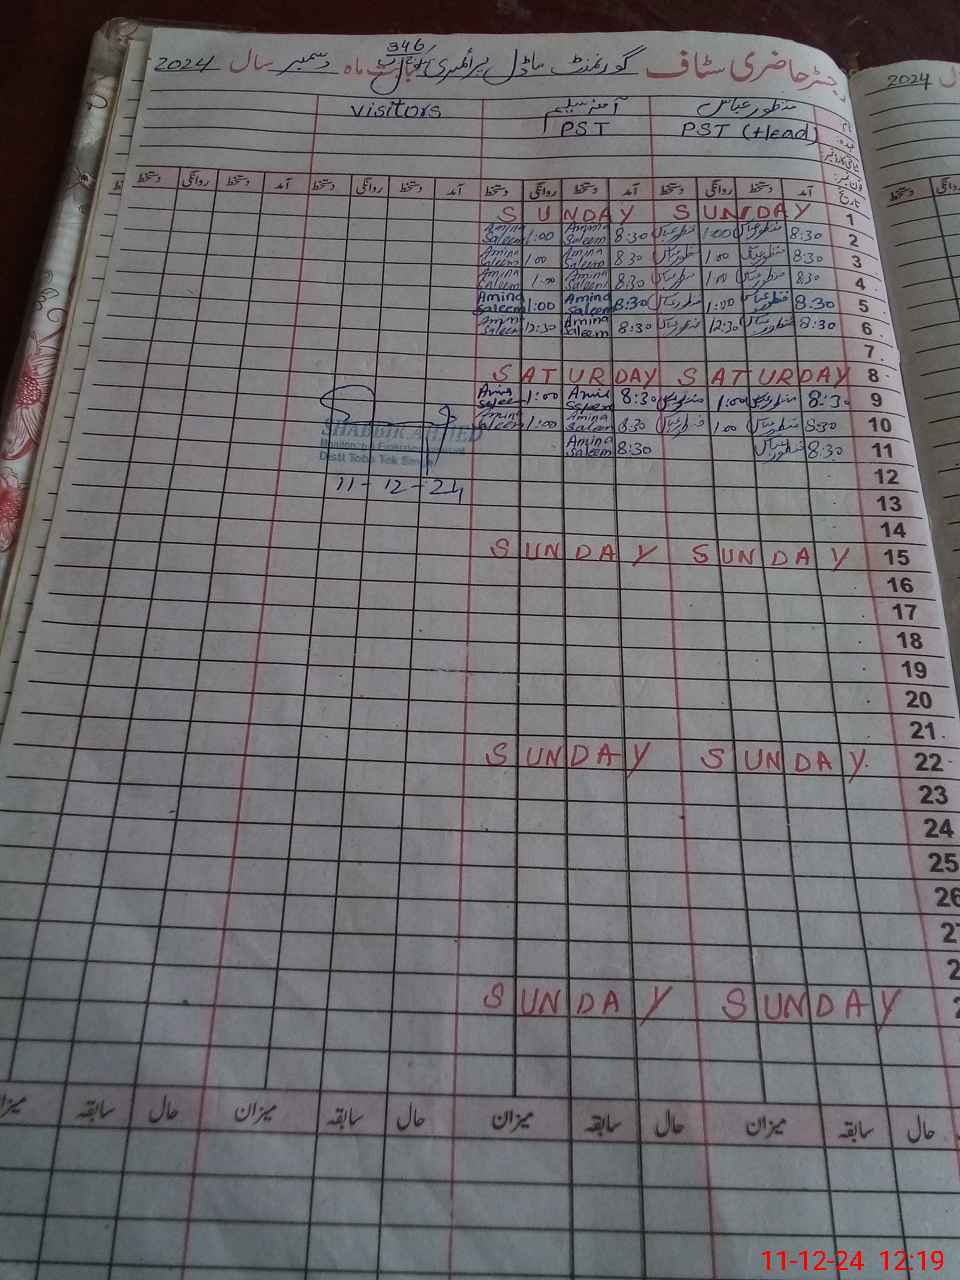 رجسٹر حاضری سٹاف گورنمنٹ ماڈل پرائمری 346 بابت ماہ دسمبر سال 2024
نام منظور عباس آمنہ سلیم visitors
عہدہ PST (Head) PST
تاریخ آمد دستخط روانگی دستخط آمد دستخط روانگی دستخط آمد دستخط روانگی دستخط آمد دستخط روانگی دستخط
1 SUNDAY SUNDAY
2 8:30 منظور عباس 1:00 منظور عباس 8:30 Amina Saleem 1:00 Amina Saleem
3 8:30 منظور عباس 1:00 منظور عباس 8:30 Amina Saleem 1:00 Amina Saleem
4 8:30 منظور عباس 1:00 منظور عباس 8:30 Amina Saleem 1:00 Amina Saleem
5 8:30 منظور عباس 1:00 منظور عباس 8:30 Amina Saleem 1:00 Amina Saleem
6 8:30 منظور عباس 12:30 منظور عباس 8:30 Amina Saleem 12:30 Amina Saleem
7
8 SATURDAY SATURDAY
9 8:30 منظور عباس 1:00 منظور عباس 8:30 Amina Saleem 1:00 Amina Saleem
10 8:30 منظور عباس 1:00 منظور عباس 8:30 Amina Saleem 1:00 Amina Saleem
11 8:30 منظور عباس 8:30 Amina Saleem
SHABBIR AHMED
Distt Toba Tek Singh
11-12-24
12
13
14
15 SUNDAY SUNDAY
16
17
18
19
20
21
22 SUNDAY SUNDAY
23
24
25
26
SUNDAY SUNDAY
حال سابقہ میزان حال سابقہ میزان حال سابقہ میزان حال سابقہ میزان
2024 سال
11-12-24 12:19